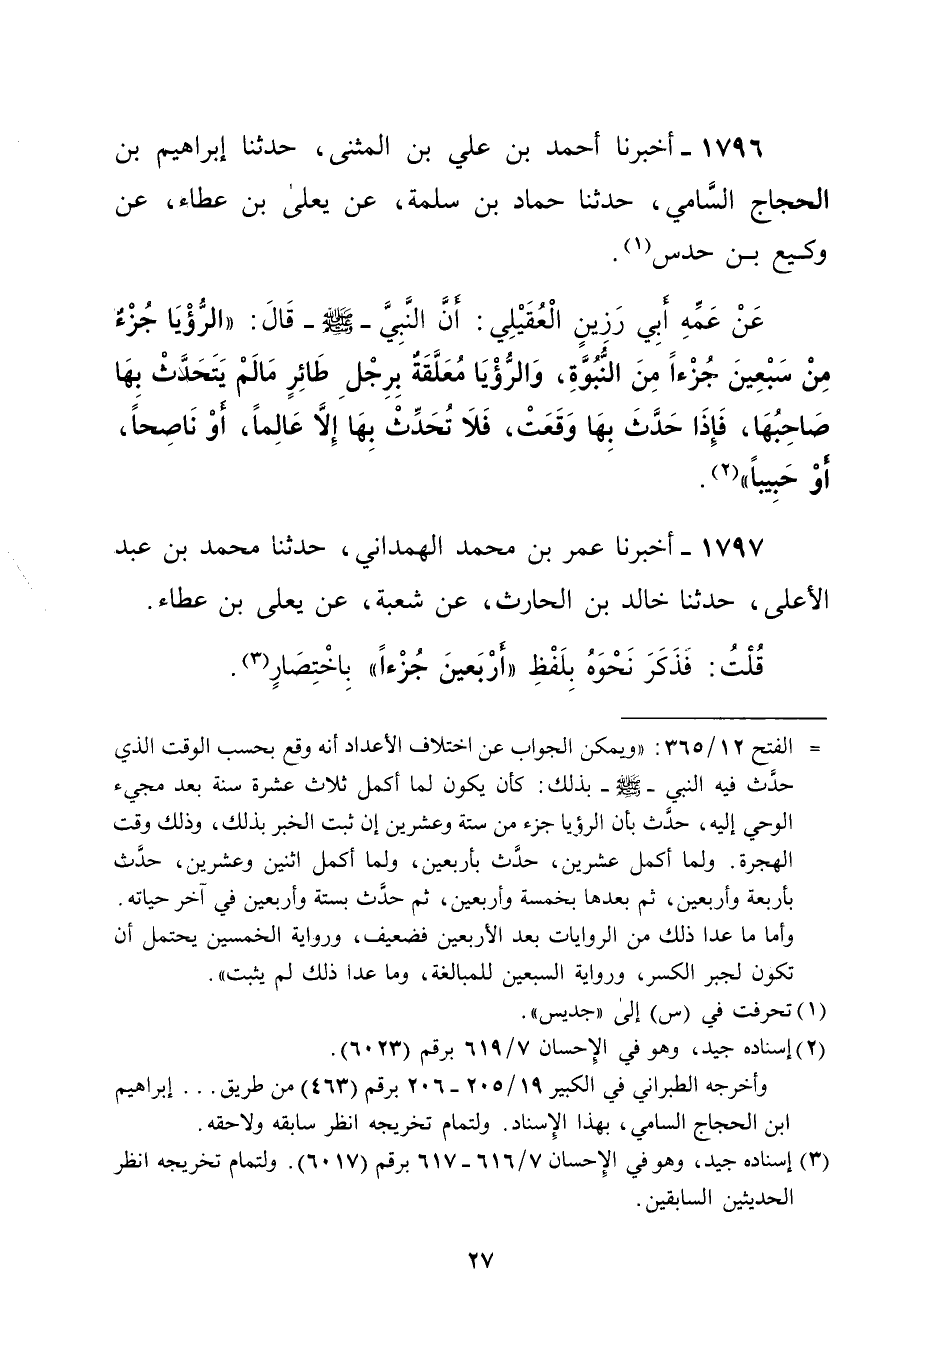 ١٧٩٦ ـ أخبرنا أحمد بن علي بن المثنى، حدثنا إبراهيم بن
الحجاج السَّامي، حدثنا حماد بن سلمة، عن يعلىٰ بن عطاء، عن
وكيع بن حدس(١).
عَنْ عَمِّهِ أَبِي رَزِينٍ الْعُقَيْلِي: أَنَّ النَّبِيَّ ـ ﷺ ـ قَالَ: «الرُّؤْيَا جُزْءٌ
مِنْ سَبْعِينَ جُزْءاً مِنَ النُّبُوَّةِ، وَالرُّؤْيَا مُعَلَّقَةٌ بِرِجْلِ طَائِرٍ مَالَمْ يَتَحَدَّثْ بِهَا
صَاحِبُهَا، فَإِذَا حَدَّثَ بِهَا وَقَعَتْ، فَلَا تُحَدِّثْ بِهَا إِلَّا عَالِماً، أَوْ نَاصِحاً،
أَوْ حَبِيباً»(٢).
١٧٩٧ ـ أخبرنا عمر بن محمد الهمداني، حدثنا محمد بن عبد
الأعلى، حدثنا خالد بن الحارث، عن شعبة، عن يعلى بن عطاء.
قُلْتُ: فَذَكَرَ نَحْوَهُ بِلَفْظِ «أَرْبَعِينَ جُزْءاً» بِاخْتِصَارٍ(٣).
= الفتح ١٢/٣٦٥: «ويمكن الجواب عن اختلاف الأعداد أنه وقع بحسب الوقت الذي
حدَّث فيه النبي ـ ﷺ ـ بذلك: كأن يكون لما أكمل ثلاث عشرة سنة بعد مجيء
الوحي إليه، حدَّث بأن الرؤيا جزء من ستة وعشرين إن ثبت الخبر بذلك، وذلك وقت
الهجرة. ولما أكمل عشرين، حدَّث بأربعين، ولما أكمل اثنين وعشرين، حدَّث
بأربعة وأربعين، ثم بعدها بخمسة وأربعين، ثم حدَّث بستة وأربعين في آخر حياته.
وأما ما عدا ذلك من الروايات بعد الأربعين فضعيف، ورواية الخمسين يحتمل أن
تكون لجبر الكسر، ورواية السبعين للمبالغة، وما عدا ذلك لم يثبت».
(١) تحرفت في (س) إلىٰ «جديس».
(٢) إسناده جيد، وهو في الإحسان ٧/٦١٩ برقم (٦٠٢٣).
وأخرجه الطبراني في الكبير ١٩/٢٠٥ ـ ٢٠٦ برقم (٤٦٣) من طريق... إبراهيم
ابن الحجاج السامي، بهذا الإسناد. ولتمام تخريجه انظر سابقه ولاحقه.
(٣) إسناده جيد، وهو في الإحسان ٧/٦١٦ ـ ٦١٧ برقم (٦٠١٧). ولتمام تخريجه انظر
الحديثين السابقين.
٢٧